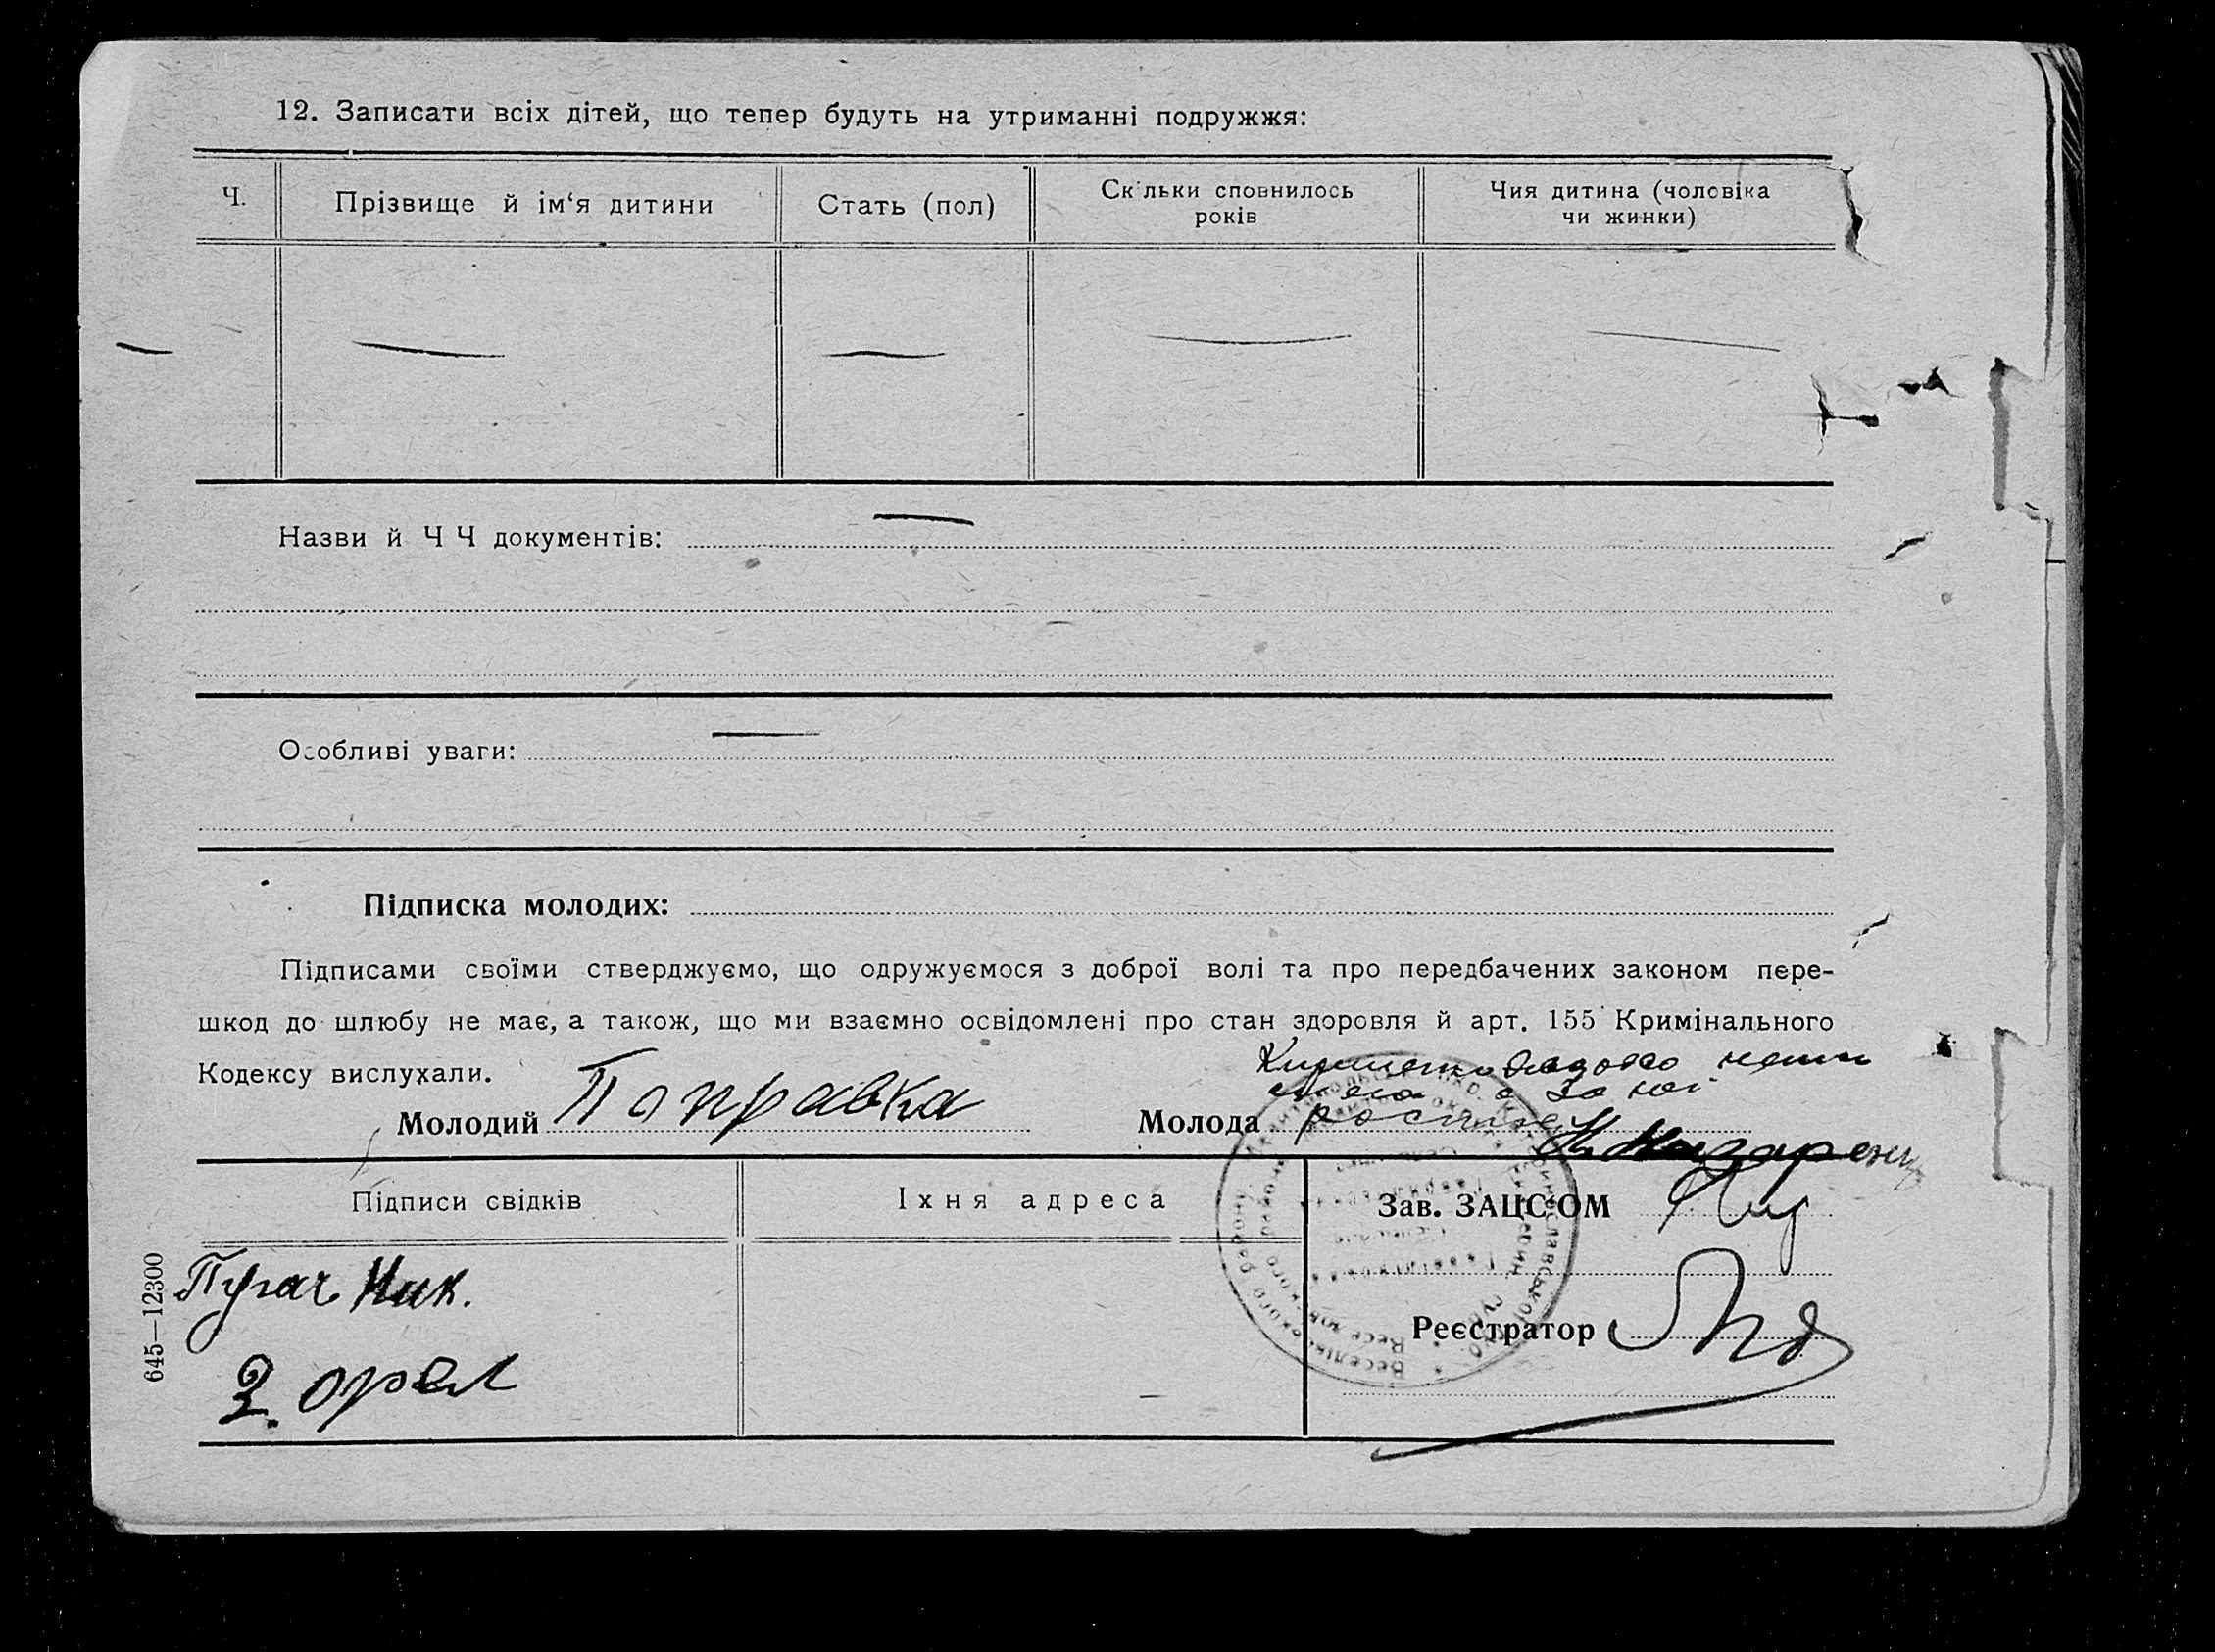 12. Записати всіх дітей, що тепер будуть на утриманні подружжя:
Ч.
Прізвище й ім‘я дитини
Стать (пол)
Скільки сповнилось
років
Чия дитина (чоловіка
чи жинки)
Назви й Ч Ч документів:
Особливі уваги:
Підписка молодих:
Підписами своїми стверджуємо, що одружуємося з доброї волі та про передбачених законом пере-
шкод до шлюбу не має, а також, що ми взаємно освідомлені про стан здоровля й арт. 155 Кримінального
Кодексу вислухали.
Молодий Поправка
Молода
Підписи свідків
Іхня адреса
Зав. ЗАЦС‘ОМ
Пугач Ник.
Реєстратор
З. орел
645—12300